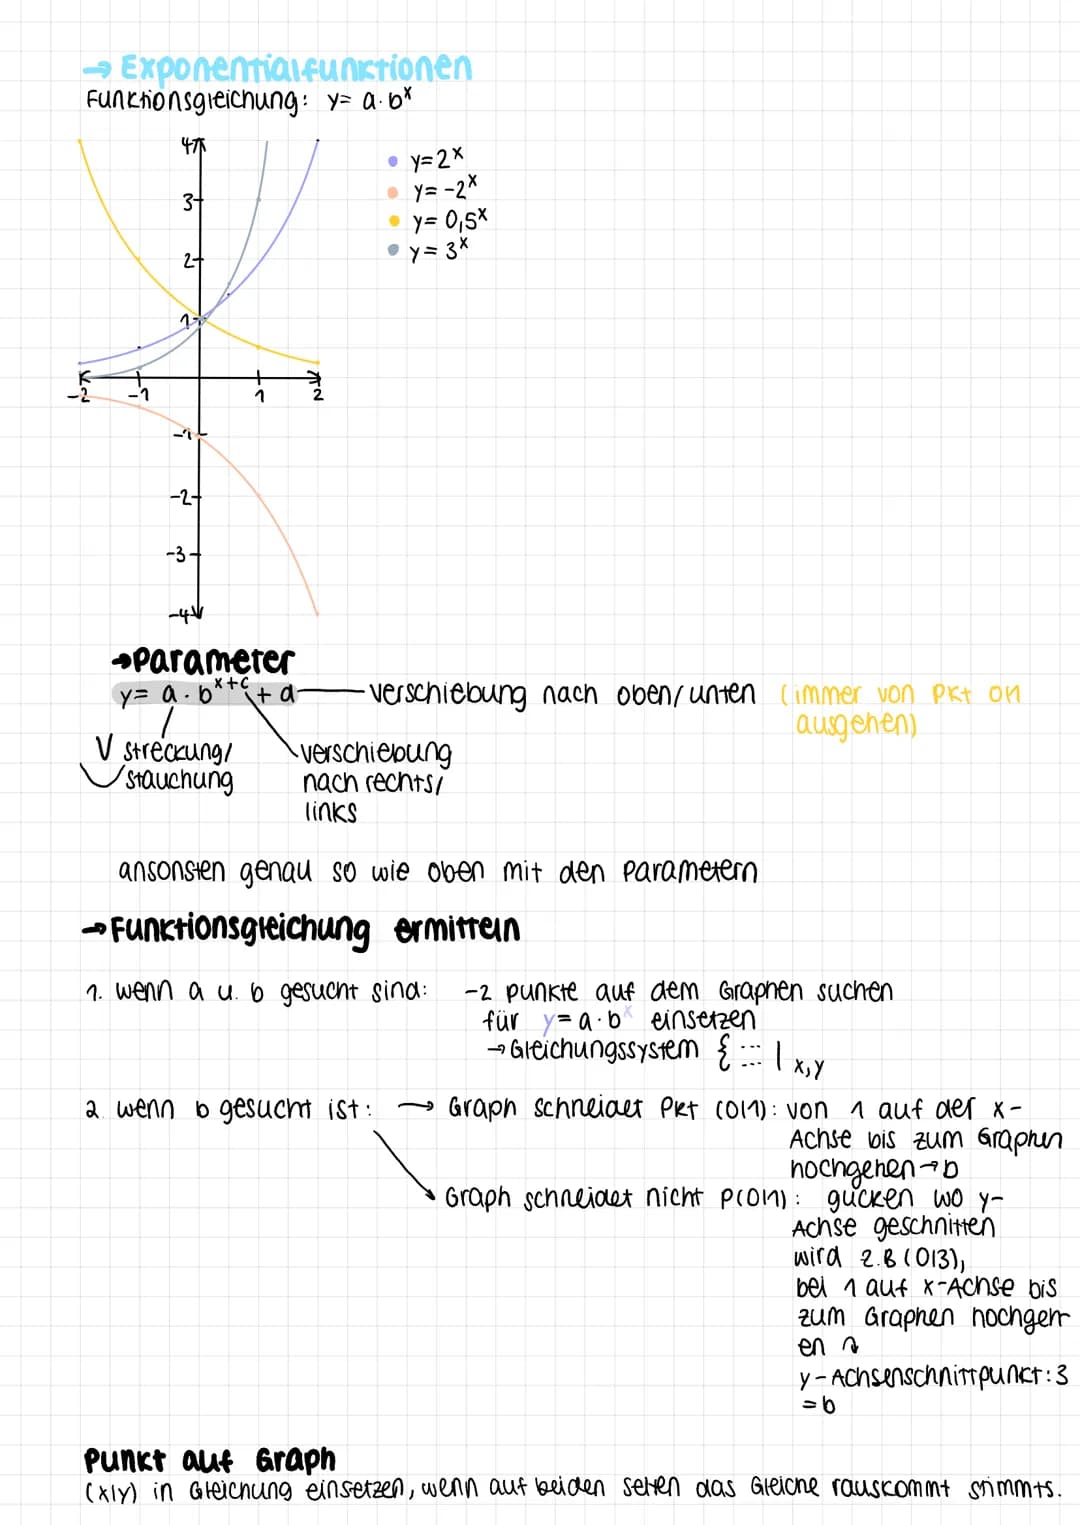 → Exponentialfunktionen
Funktionsgleichung: y= a·bˣ
4
3
2
1
-2 -1 1 2
-1
-2
-3
-4
• y=2ˣ
• y= -2ˣ
• y= 0,5ˣ
• y= 3ˣ
→Parameter
y= a·bˣ⁺ᶜ + d
verschiebung nach oben/unten (immer von Pkt 0/1
ausgehen)
V streckung/
stauchung
verschiebung
nach rechts/
links
ansonsten genau so wie oben mit den Parametern
→Funktionsgleichung ermitteln
1. wenn a u. b gesucht sind: -2 punkte auf dem Graphen suchen
für y= a·bˣ einsetzen
→Gleichungssystem { ... | x,y
2 wenn b gesucht ist: → Graph schneidet Pkt (0|1): von 1 auf der x-
Achse bis zum Graphen
hochgehen→b
Graph schneidet nicht P(0|1): gucken wo y-
Achse geschnitten
wird z.B (0|3),
bei 1 auf x-Achse bis
zum Graphen hochgeh
en
y-Achsenschnittpunkt:3
=b
Punkt auf Graph
(x|y) in Gleichung einsetzen, wenn auf beiden seiten das Gleiche rauskommt stimmts.